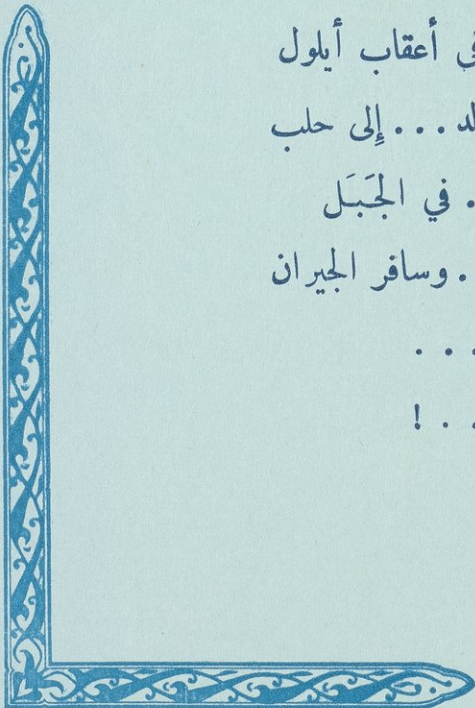 في أعقاب أيلول
... إلى حلب
. في الجَبَل
. وسافر الجيران
. . .
. . !